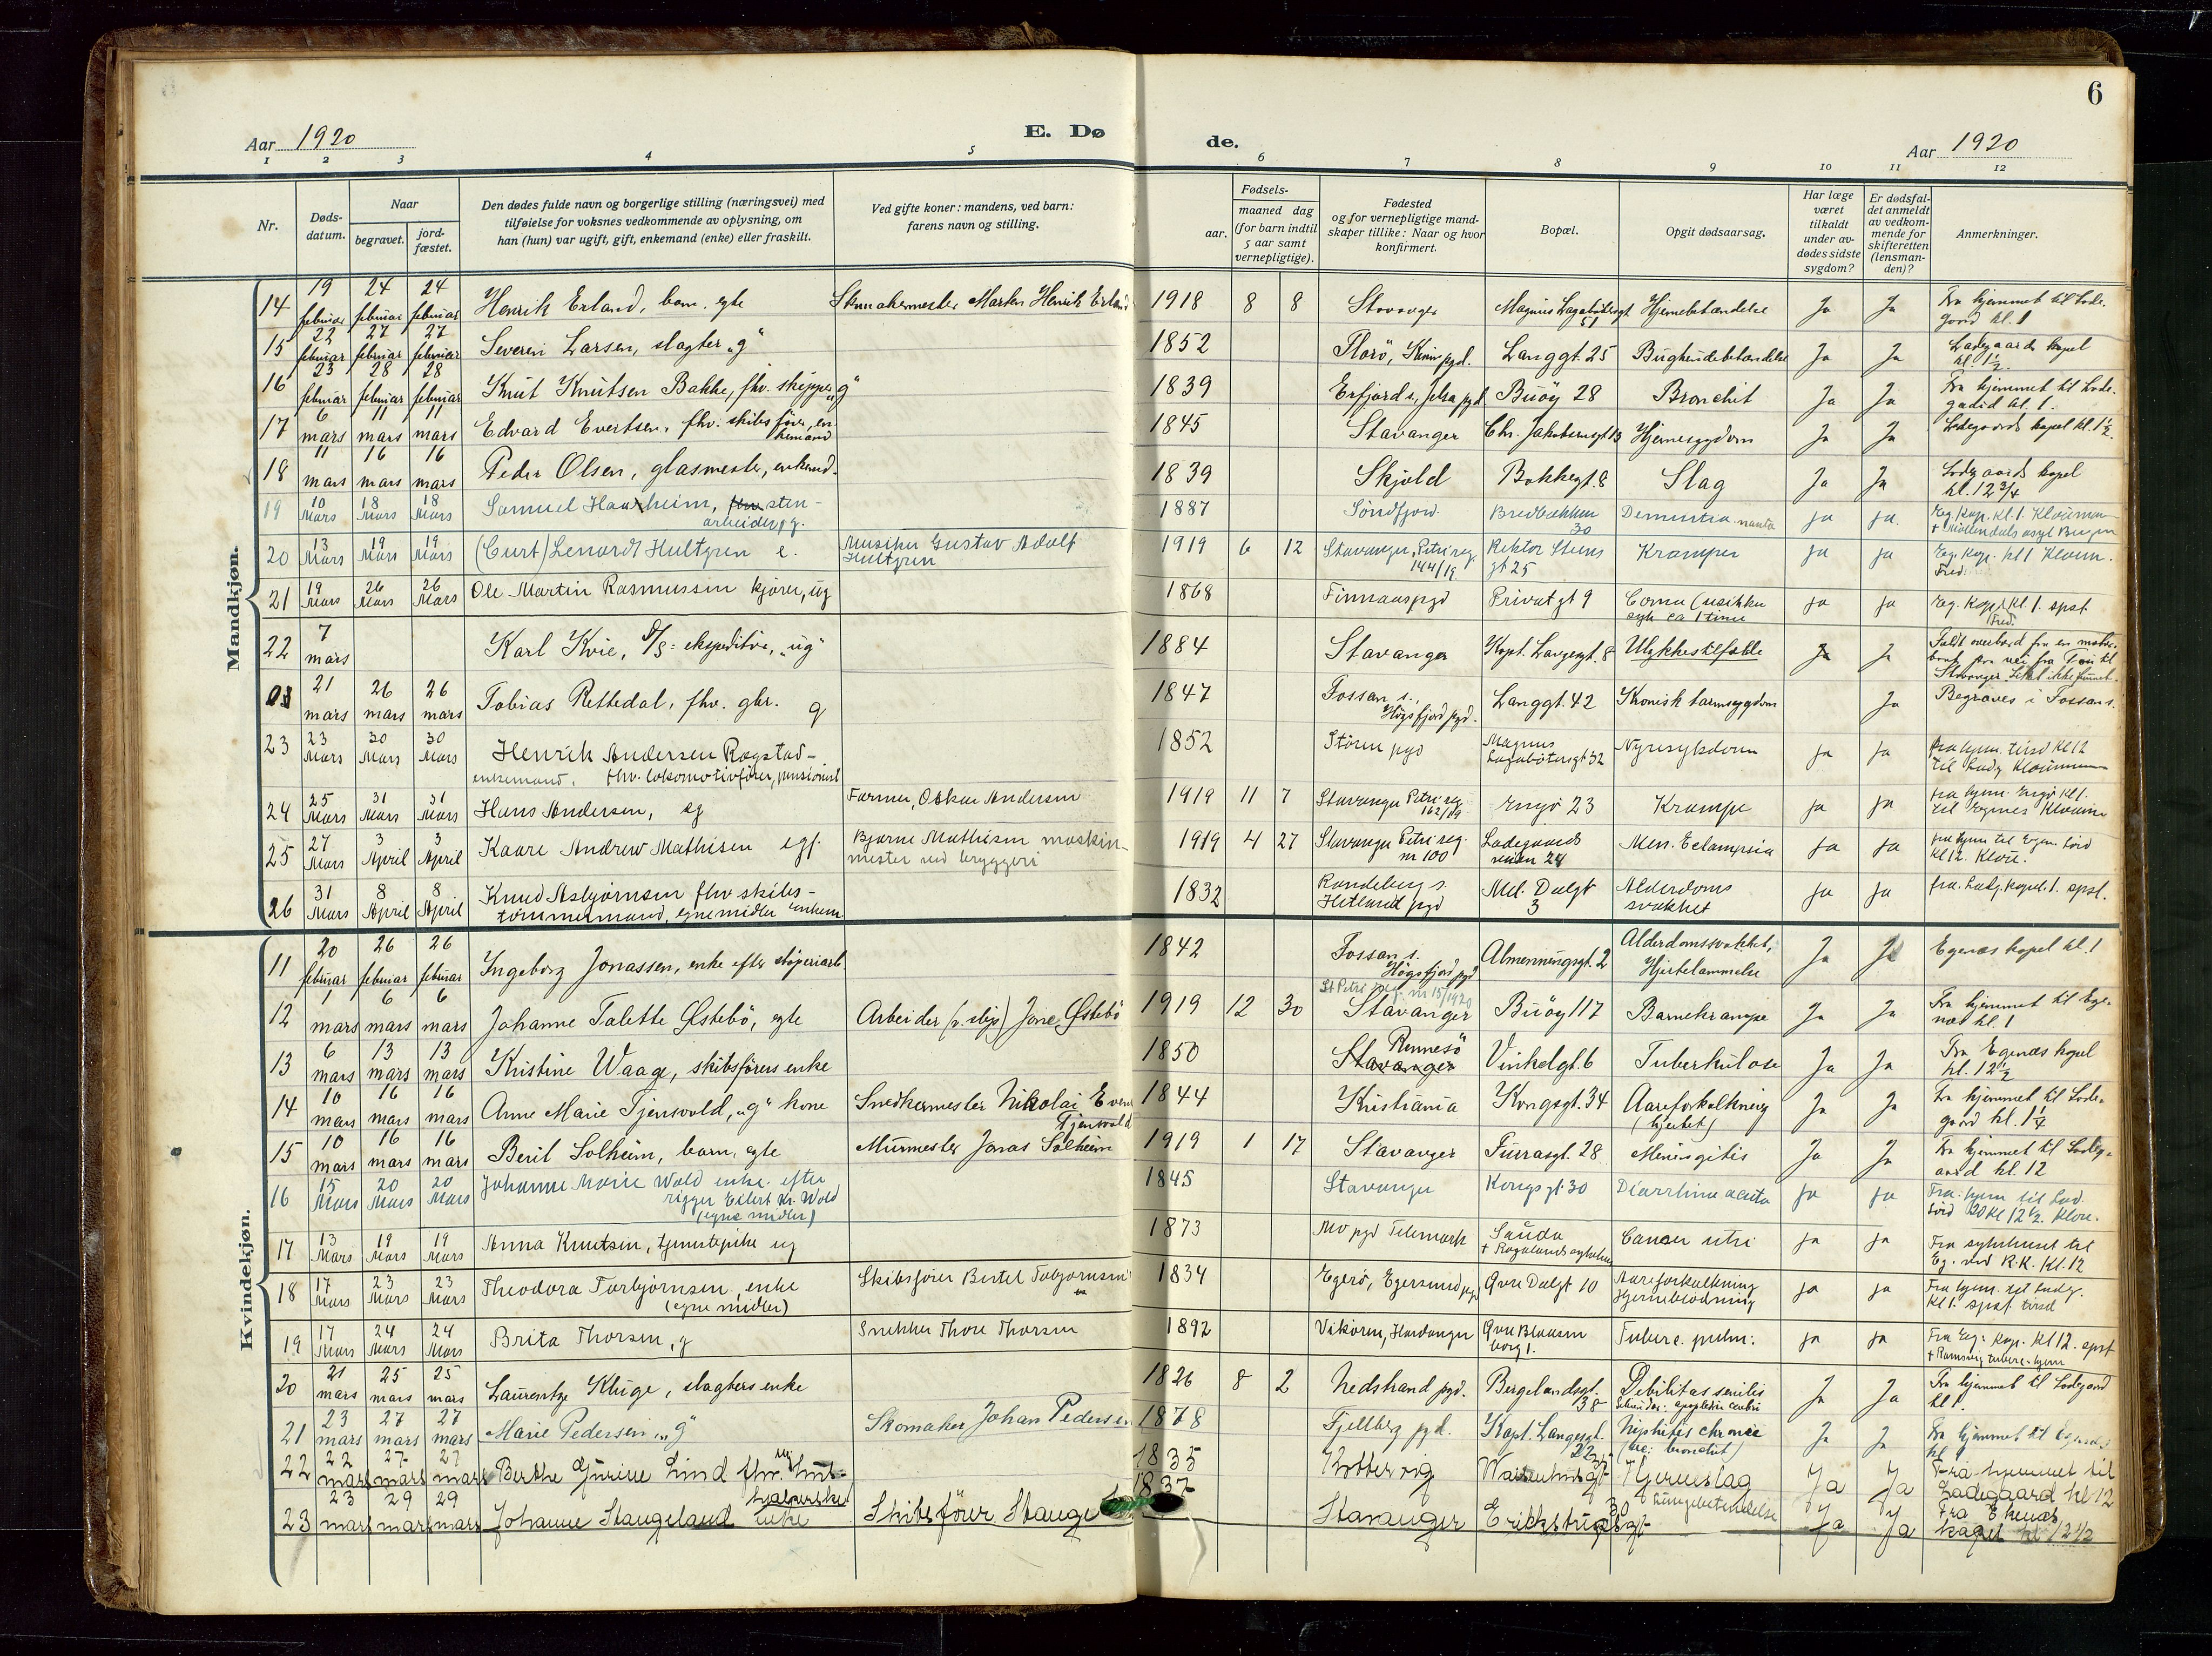 6
Aar 1920
E. Dø
de.
Aar 1920
1 2 3 4 5 6 7 8 9 10 11 12
Nr.
Døds-
datum.
Naar
begravet.
jord-
fæstet.
Den dødes fulde navn og borgerlige stilling (næringsvei) med
tilføielse for voksnes vedkommende av oplysning, om
han (hun) var ugift, gift, enkemand (enke) eller fraskilt.
Ved gifte koner: mandens, ved barn:
farens navn og stilling.
Fødsels-
aar.
maaned dag
(for barn indtil
5 aar samt
vernepligtige).
Fødested
og for vernepligtige mand-
skaper tillike: Naar og hvor
konfirmert.
Bopæl.
Opgit dødsaarsag.
Har læge
været
tilkaldt
under av-
dødes sidste
sygdom?
Er dødsfal-
det anmeldt
av vedkom-
mende for
skifteretten
(lensman-
den)?
Anmerkninger.
Mandkjøn.
14 19 februar 24 februar 24 februar Henrik Erland, barn, egte Skomakermester Marten Henrik Erland 1918 8 8 Stavanger Magnus Lagabøtersgt 51 Hjernebetændelse Ja Ja Fra hjemmet til Lade-
gaard kl. 1
15 22 februar 27 februar 27 februar Severin Larsen, slagter "g" 1852 Florö, Kinn pgd. Langgt. 25 Bughindebetændelse Ja Ja Ladegaards kapel
kl. 1½
16 23 februar 28 februar 28 februar Knut Knutsen Bakke, fhv. skipper "g" 1839 Erfjord s., Jelsa pgd. Buøy 28 Bronchit Ja Ja Fra hjemmet til Lade-
gaard kl. 1.
17 6 mars 11 mars 11 mars Edvard Evertsen, fhv. skibsfører, en-
kemand 1845 Stavanger Chr. Jakobsensgt 13 Hjernesygdom Ja Ja Ladegaards kapel kl. 1½
18 11 mars 16 mars 16 mars Peder Olsen, glasmester, enkemd. 1839 Skjold Bakkegt. 8 Slag Ja Ja Ladegaards kapel
kl. 12¾
19 10 Mars 18 Mars 18 Mars Samuel Hauxheim, sten-
arbeider, g. 1887 Søndfjord Bredbakken
30 Dementia ja ja. Eg. Kap. Kl. 1.
20 13 Mars 19 Mars 19 Mars (Curt) Lenardt Hultgren e. Musiker Gustav Adolf
Hultgren 1919 6 12 Stavanger, Petri reg.
144/19 Rektor Steens
gt 25 Kramper ja ja Eg. Kap. kl 1
Fred.
21 19 Mars 26 Mars 26 Mars Ole Martin Rasmussen kjører, ug 1868 Finnaaspgd Privat gt 9 Coma (usikker
syk ca 1 time ja ja Eg. Kapel kl. 1. spst.
Fred.
22 7 mars Karl Kvie, D/S: ekspeditør, "ug" 1884 Stavanger Kapt. Langesgt. 8 Ulykkestilfælde Ja Faldt overbord fra en motor-
baat paa vei fra Tau til
Stavanger. Liket ikke funnet.
21 mars 26 mars 26 mars Tobias Rettedal, fhv. gbr. g 1847 Fossan s.
Høgsfjord pgd. Langgt. 42 Kronisk tarmsygdom Ja Begraves i Fossan s.
23 23 Mars 30 Mars 30 Mars Henrik Andersen Rogstad-
enkemand. fhv. lokomotivfører, pensionist 1852 Støren pgd Magnus
Lagabøtersgt 32 Nyresykdom ja ja fra hjem. tirsd kl 12
til Ladg
24 25 Mars 31 Mars 31 Mars Hans Andersen, eg Farmer, Oskar Andersen 1919 11 7 Stavanger Petri reg.
162/19 Engø 23 Krampe ja ja fra hjem. Engø kl 1.
til Egenes
25 27 Mars 3 April 3 April Kaare Andrew Mathisen egf. Bjarne Mathisen maskin-
mester ved bryggeri 1919 4 27 Stavanger Petri reg.
nr 100 Ladegaards
veien 24 Men. Eclampsia ja ja fra hjem til Egen. lörd
kl 12.
26 31 Mars 8 April 8 April Knud Asbjørnsen fhv skibs-
tømmermand, egne midler enkem 1832 Randeberg s.
Hetland pgd Mel. Dalgt
3 Alderdoms
svakhet ja ja fra. Ladg. kapel. 1. spst.
Kvindekjøn.
11 20 februar 26 februar 26 februar Ingeborg Jonassen, enke efter støperiarb. 1842 Fossan s.
Høgsfjord pgd Almenningsgt. 2 Alderdomssvakhet,
Hjertelammelse Ja Ja Egenæs kapel kl. 1
12 1 mars 6 mars 6 mars Johanne Talette Østebö, egte Arbeider Jone Østebö 1919 12 30 St Petri reg. nr 15/1920
Stavanger Buøy 117 Barnekrampe Ja Ja Fra hjemmet til Ege-
næs kl. 1
13 6 mars 13 mars 13 mars Kristine Waage, skibsførers enke 1850 Rennesö
Stavanger Vinkelgt. 6 Tuberkulose Ja Ja Fra Egenæs kapel
kl. 12½
14 10 mars 16 mars 16 mars Anne Marie Tjensvold, "g" kone Snedkermester Nikolai Even
Tjensvold 1844 Kristiania Kongsgt. 34 Aareforkalkning
(hjertet) Ja Ja Fra hjemmet til Lade-
gaard kl. 1¼
15 10 mars 16 mars 16 mars Berit Solheim, barn, egte Murmester Jonas Solheim 1919 1 17 Stavanger Furrasgt. 28 Meningitis Ja Ja Fra hjemmet til Ladeg-
aard kl. 12
16 15 Mars 20 Mars 20 Mars Johanne Marie Wold enke efter
rigger Eilert Kr. Wold
(egne midler) 1845 Stavanger Kongsgt 30 Diarrhina acuta ja ja Fra hjem til Lad.
lörd 20 kl 12½.
17 13 Mars 19 Mars 19 Mars Anna Knutsen, tjenestepike ug 1873 Mo pgd Telemark Sauda
+ Rogalands sykehus Cancer utri ja ja Fra sykehuset til
Eg. ved R.K. Kl. 12
18 17 Mars 23 Mars 23 Mars Theodora Torbjørnsen, enke
(egne midler) Skibsfører Bertel Tobjørnsen 1834 Egerö, Egersund pgd Øvre Dalgt 10 Aareforkalkning
Hjerneblødning ja ja Fra hjem. til Ladg.
kl 1. spst. tirsd
19 17 Mars 24 Mars 24 Mars Brita Thorsen, g Snekker Thore Thorsen 1892 Vikören, Hardanger Øvre Blaasen
borg 1. Tuberc. pulm: ja ja Fra Eg: Kap. kl 12. spst
+ Ramsvig tuberc. hjem
20 21 mars 25 mars 25 mars Laurentze Kluge, slagters enke 1826 8 2 Nedstrand pgd. Bergelandsgt.
38 Debilitas senilis
Ja Ja Fra hjemmet til Ladegaard
kl 1.
21 23 mars 27 mars 27 mars Marie Pedersen, "g" Skomaker Johan Pedersen 1878 Fjeldberg pgd. Kapt. Langesgt.
22 Nephritis chronic
bronchit) Ja Ja Fra hjemmet til Egenæs
kl 1
22 22 mars 27 mars 27 mars Berthe Gurine Lind fhv. 1835 Kobbervig Waisenhusgt Hjerneslag Ja Ja Fra hjemmet til
Ladegaard kl 12
23 23 mars 29 mars 29 mars Johanne Stangeland enke Skibsfører Stange 1837 Stavanger Erichstrupsgt
30 Lungebetændelse Ja Ja Fra Ekenæs
kapel kl 12½